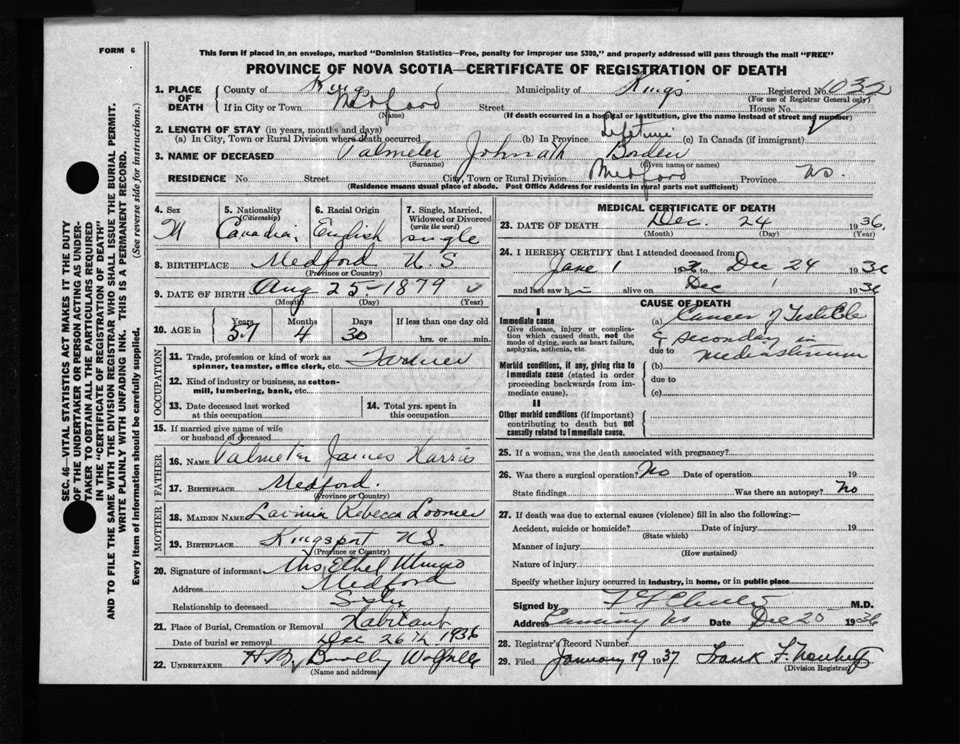 FORM 6
This form if placed in an envelope, marked "Dominion Statistics—Free, penalty for improper use $300," and properly addressed will pass through the mail "FREE"
PROVINCE OF NOVA SCOTIA—CERTIFICATE OF REGISTRATION OF DEATH
1. PLACE OF DEATH { County of Kings Municipality of Kings Registered No. 1032
(For use of Registrar General only)
If in City or Town Medford Street House No.
(Name) (If death occurred in a hospital or institution, give the name instead of street and number)
2. LENGTH OF STAY (in years, months and days)
(a) In City, Town or Rural Division where death occurred (b) In Province Lifetime (c) In Canada (if immigrant)
3. NAME OF DECEASED Palmeter Johnath Borden
(Surname) (Given name or names)
RESIDENCE No. Street City, Town or Rural Division Medford Province N.S.
(Residence means usual place of abode. Post Office Address for residents in rural parts not sufficient)
4. Sex M
5. Nationality (Citizenship) Canadian
6. Racial Origin English
7. Single, Married, Widowed or Divorced (write the word) single
8. BIRTHPLACE Medford N.S
(Province or Country)
9. DATE OF BIRTH Aug 25 - 1879
(Month) (Day) (Year)
10. AGE in { Years 57 Months 4 Days 30 If less than one day old hrs. or min.
OCCUPATION
11. Trade, profession or kind of work as spinner, teamster, office clerk, etc. Farmer
12. Kind of industry or business, as cotton-mill, lumbering, bank, etc.
13. Date deceased last worked at this occupation
14. Total yrs. spent in this occupation
15. If married give name of wife or husband of deceased
FATHER
16. NAME Palmeter James Harris
17. BIRTHPLACE Medford.
(Province or Country)
MOTHER
18. MAIDEN NAME Lavinia Rebecca Loomer
19. BIRTHPLACE Kingsport N.S.
(Province or Country)
20. Signature of informant Mrs Ethel Munro
Address Medford
Relationship to deceased Sister
21. Place of Burial, Cremation or Removal Habitant
Date of burial or removal Dec 26th 1936
22. UNDERTAKER Wolfville
(Name and address)
MEDICAL CERTIFICATE OF DEATH
23. DATE OF DEATH Dec. 24 1936.
(Month) (Day) (Year)
24. I HEREBY CERTIFY that I attended deceased from
June 1 193 to Dec 24 1936
and last saw h alive on Dec 1 1936
CAUSE OF DEATH
I
Immediate cause
Give disease, injury or complication which caused death, not the mode of dying, such as heart failure, asphyxia, asthenia, etc.
(a) Cancer of Testicle
& secondary in
due to mediastinum
Morbid conditions, if any, giving rise to immediate cause (stated in order proceeding backwards from immediate cause).
(b)
due to
(c)
II
Other morbid conditions (if important) contributing to death but not causally related to immediate cause.
25. If a woman, was the death associated with pregnancy?
26. Was there a surgical operation? No Date of operation 19
State findings Was there an autopsy? No
27. If death was due to external causes (violence) fill in also the following:—
Accident, suicide or homicide? Date of injury 19
(State which)
Manner of injury
(How sustained)
Nature of injury
Specify whether injury occurred in industry, in home, or in public place
Signed by M.D.
Address Canning NS Date Dec 25 1936
28. Registrar's Record Number
29. Filed January 19 1937 Frank F.
(Division Registrar)
SEC. 46—VITAL STATISTICS ACT MAKES IT THE DUTY
OF THE UNDERTAKER OR PERSON ACTING AS UNDER-
TAKER TO OBTAIN ALL THE PARTICULARS REQUIRED
IN THE "CERTIFICATE OF REGISTRATION OF DEATH"
AND TO FILE THE SAME WITH THE DIVISION REGISTRAR WHO SHALL ISSUE THE BURIAL PERMIT.
WRITE PLAINLY WITH UNFADING INK. THIS IS A PERMANENT RECORD.
Every item of information should be carefully supplied. (See reverse side for instructions.)